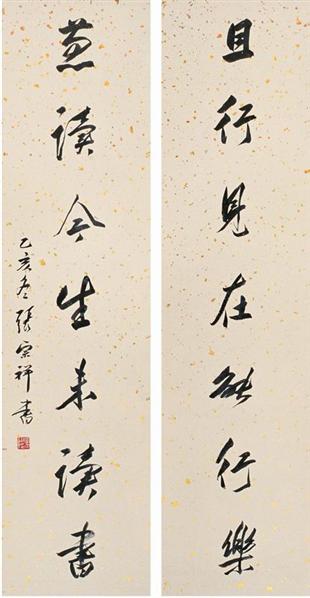 且行見在能行樂
兼讀今生未讀書
乙亥冬張宗祥書